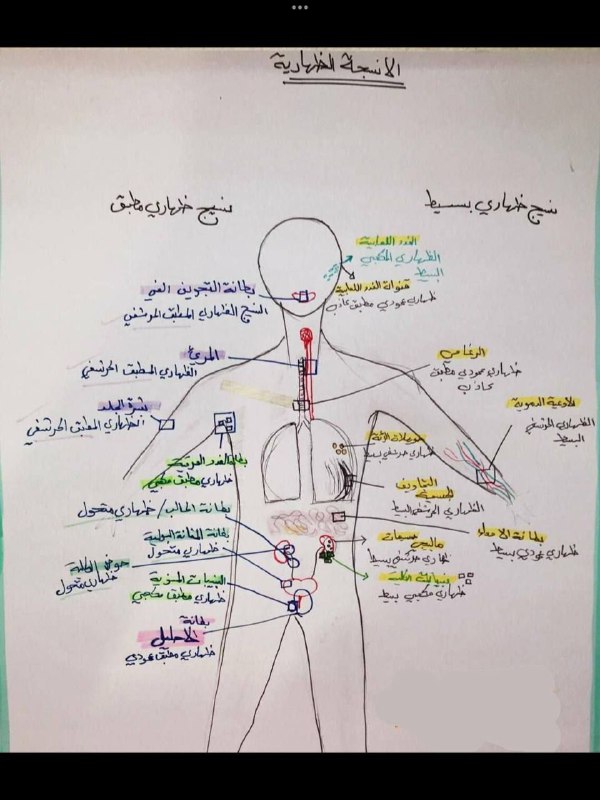 الانسجة الظهارية
نسيج ظهاري بسيط
نسيج ظهاري مطبق
الغدد اللعابية
الظهاري المكعبي
البسيط
قنوات الغدد اللعابية
ظهاري عمودي مطبق كاذب
بطانة التجويف الفمي
النسيج الظهاري المطبق الحرشفي
الرغامى
ظهاري عمودي مطبق
كاذب
المريء
الظهاري المطبق الحرشفي
الاوعية الدموية
الظهاري الحرشفي
البسيط
بشرة الجلد
الظهاري المطبق الحرشفي
حويصلات الرئة
ظهاري حرشفي بسيط
بطانة الغدد العرقية
ظهاري مطبق مكعبي
التجاويف
الجسمية
الظهاري الحرشفي البسيط
بطانة الحالب / ظهاري متحول
بطانة الامعاء
ظهاري عمودي بسيط
بطانة المثانة البولية
ظهاري متحول
ظهاري حرشفي بسيط
حوض الكلية
ظهاري متحول
نبيبات الكلية
ظهاري مكعبي بسيط
النبيبات المنوية
ظهاري مطبق مكعبي
بطانة
الاحليل
ظهاري مطبق عمودي